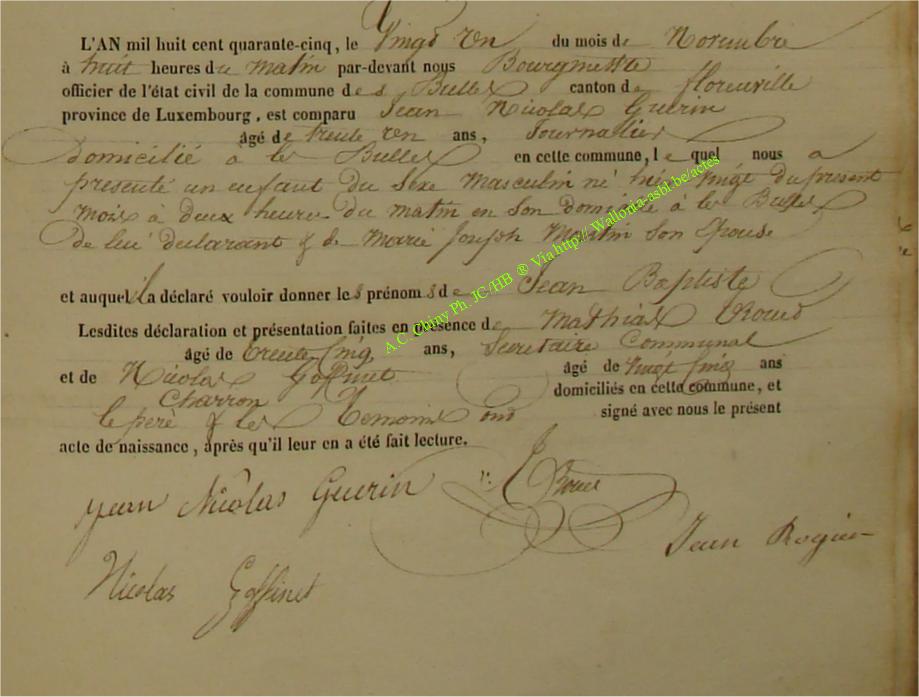 L'AN mil huit cent quarante-cinq, le Vingt un du mois de Novembre
à huit heures du matin par-devant nous Bourgmestre
officier de l'état civil de la commune des Bulles canton de florenville
province de Luxembourg, est comparu Jean Nicolas Guerin
âgé de trente un ans, Journallier
Domicilié à les Bulles en cette commune, lequel nous a
presenté un enfant du Sexe masculin né hier vingt du present
mois à deux heures du matin en Son domicile à les Bulles
de lui declarant & de Marie Joseph Martin Son Epouse
et auquel il a déclaré vouloir donner les prénoms de Jean Baptiste
Lesdites déclaration et présentation faites en présence de Mathias
âgé de trente cinq ans, Secretaire Communal
et de Nicolas Goffinet âgé de vingt cinq ans
Charron domiciliés en cette commune, et
le père & les Temoins ont signé avec nous le présent
acte de naissance, après qu'il leur en a été fait lecture.
Jean Nicolas Guerin
Jean Rogier
Nicolas Goffinet
A.C. Chiny Ph. JC/HB ® Via http:// Wallonia-asbl.be/actes